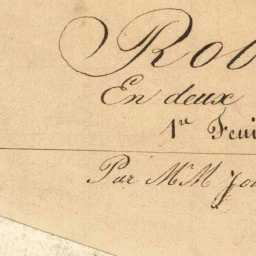 Rob
En deux
1re Feui
Par MM Jo